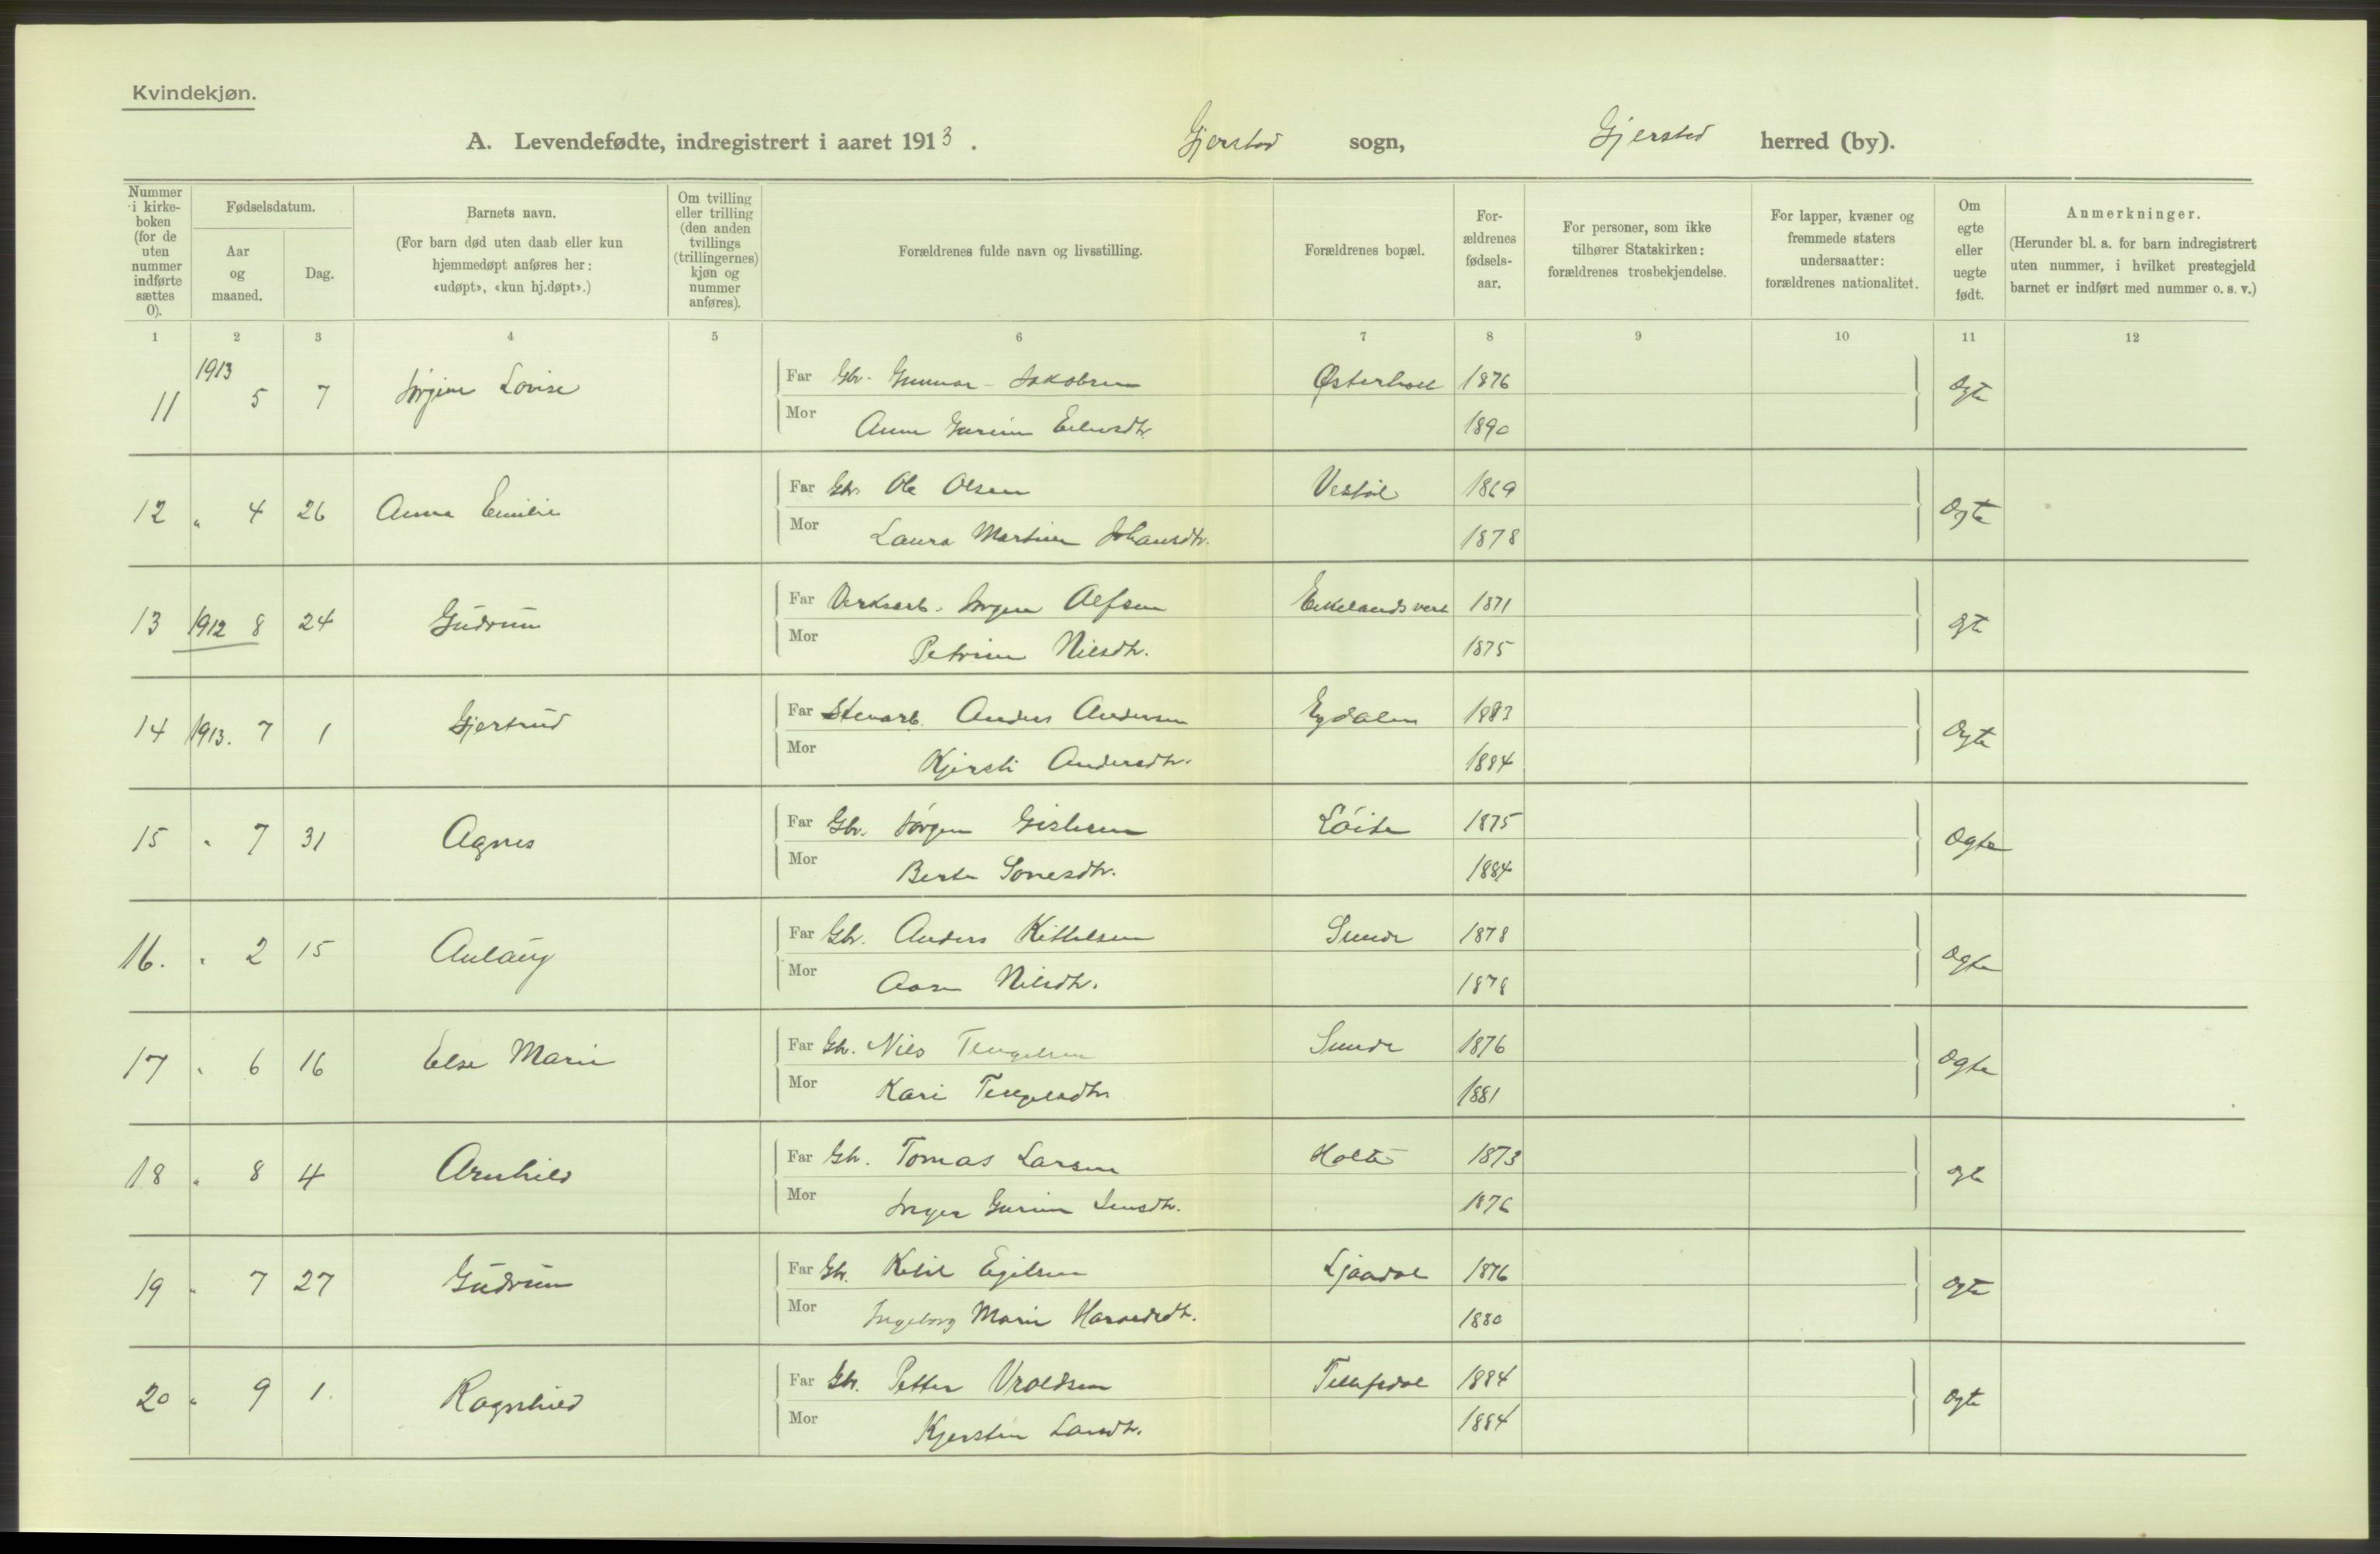 Kvindekjøn.
A. Levendefødte, indregistrert i aaret 1913. Gjerstad sogn, Gjerstad herred (by).
Nummer i kirke-boken (for de uten nummer indførte sættes 0).
Fødselsdatum.
Aar og maaned.
Dag.
Barnets navn.
(For barn død uten daab eller kun hjemmedøpt anføres her: «udøpt», «kun hj.døpt».)
Om tvilling eller trilling (den anden tvillings (trillingernes) kjøn og nummer anføres).
Forældrenes fulde navn og livsstilling.
Forældrenes bopæl.
For-ældrenes fødsels-aar.
For personer, som ikke tilhører Statskirken: forældrenes trosbekjendelse.
For lapper, kvæner og fremmede staters undersaatter: forældrenes nationalitet.
Om egte eller uegte født.
Anmerkninger.
(Herunder bl. a. for barn indregistrert uten nummer, i hvilket prestegjeld barnet er indført med nummer o. s. v.)
1 2 3 4 5 6 7 8 9 10 11 12
11 1913 5 7 Jørgine Lovise Far Gbr. Gunnar Jakobsen Østerholt 1876 Ægte
Mor Anne Gurine 1890
12 " 4 26 Anna Emilie Far Gbr. Ole Olsen Vestøl 1869 Ægte
Mor Laura Martine Johansdtr. 1878
13 1912 8 24 Gudrun Far Verksarb. Jørgen Alfsen Eikelandsverk 1871 Ægte
Mor Petrine Nilsdtr. 1875
14 1913. 7 1 Gjertrud Far Stenarb. Anders Andersen Egdalen 1883 Ægte
Mor Kjersti Andersdtr. 1884
15 " 7 31 Agnes Far Gbr. Jørgen Gislesen Løite 1875 Ægte
Mor Berte 1884
16. " 2 15 Aulaug Far Gbr. Anders Kittelsen Sunde 1878 Ægte
Mor Aase Nilsdtr. 1878
17 " 6 16 Else Marie Far Gbr. Nils Tengelsen Sunde 1876 Ægte
Mor Kari Tengelsdtr. 1881
18 " 8 4 Arnhild Far Gbr. Tomas Larsen Holte 1873 Ægte
Mor Inger Gurine Jensdtr. 1876
19 " 7 27 Gudrun Far Gbr. Ketil Egilsen Ljaadal 1876 Ægte
Mor Ingeborg Marie Haraldsdtr. 1880
20 " 9 1. Ragnhild Far Gbr. Petter Vroldsen 1884 Ægte
Mor Kjersten Larsdtr. 1884